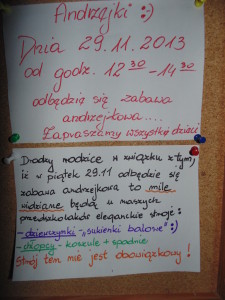 Andrzejki :)
Dnia 29.11.2013
od godz. 12 30 - 14 30
odbędzie się zabawa
andrzejkowa....
Zapraszamy wszystkie dzieci
Drodzy rodzice w związku z tym,
iż w piątek 29.11 odbędzie się
zabawa andrzejkowa to mile
widziane będą u naszych
przedszkolaków eleganckie stroje:
- dziewczynki - sukienki balowe :)
- chłopcy - koszule + spodnie
Strój ten nie jest obowiązkowy!